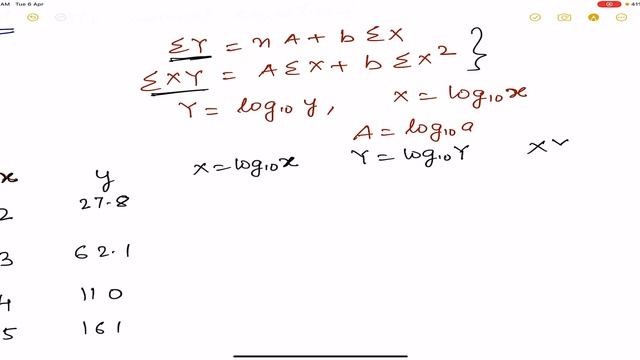 AM Tue 6 Apr
ΣY = nA + b ΣX
ΣXY = AΣX + b ΣX²
Y = log₁₀ y, X = log₁₀x
A = log₁₀a
x y X = log₁₀x Y = log₁₀Y XY
2 27.8
3 62.1
4 110
5 161